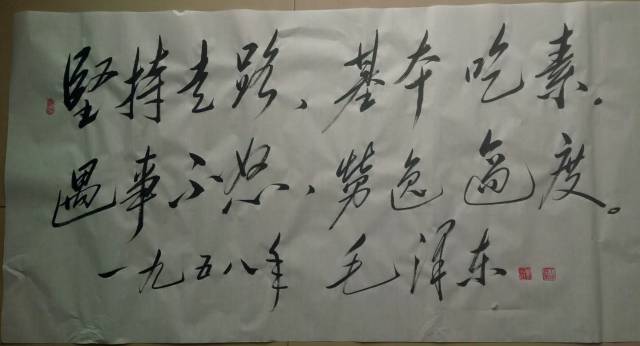 堅持走路、基本吃素。
遇事不怒、勞逸適度。
一九五八年 毛澤东